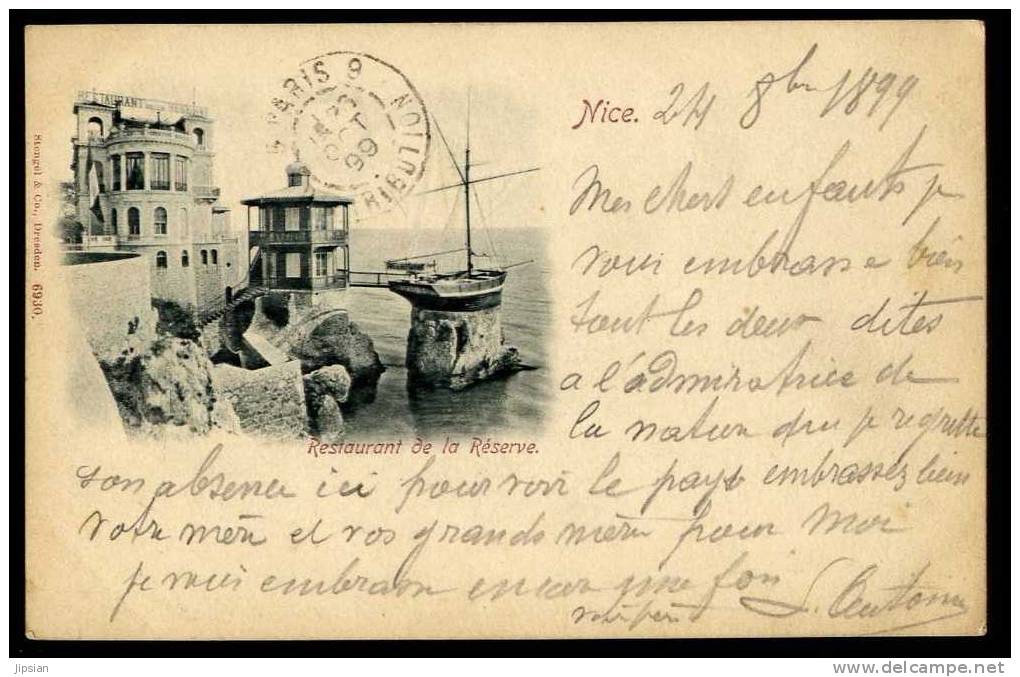 RESTAURANT DE LA RESERVE
PARIS 9 DISTRIBUTION
OCT
99
Nice. 24 8bre 1899
Mes chert enfants je
vous embrasse bien
tout les deux dites
a l'admiratrice de
la nature que je regrette
son absence ici pour voir le pays embrassez bien
votre mère et vos grands mère pour moi
je vous embrasse encore une fois
votre père L. Antoine
Restaurant de la Réserve.
Stengel & Co., Dresden. 6930.
Jipsian
www.delcampe.net